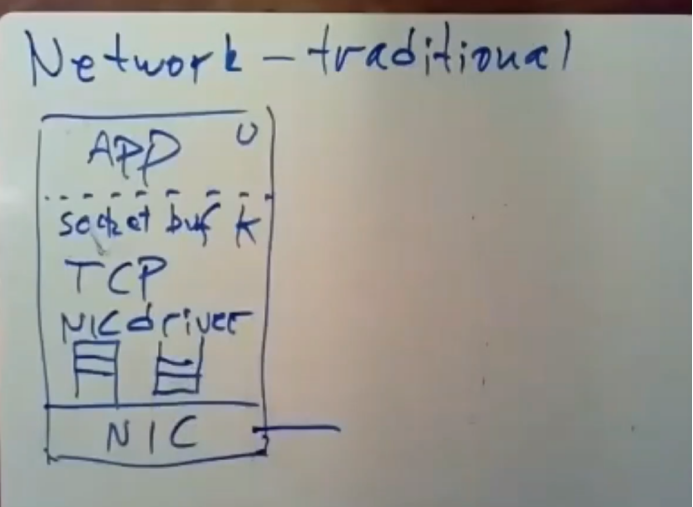 Network - traditional
APP U
socket buf K
TCP
NIC driver
NIC